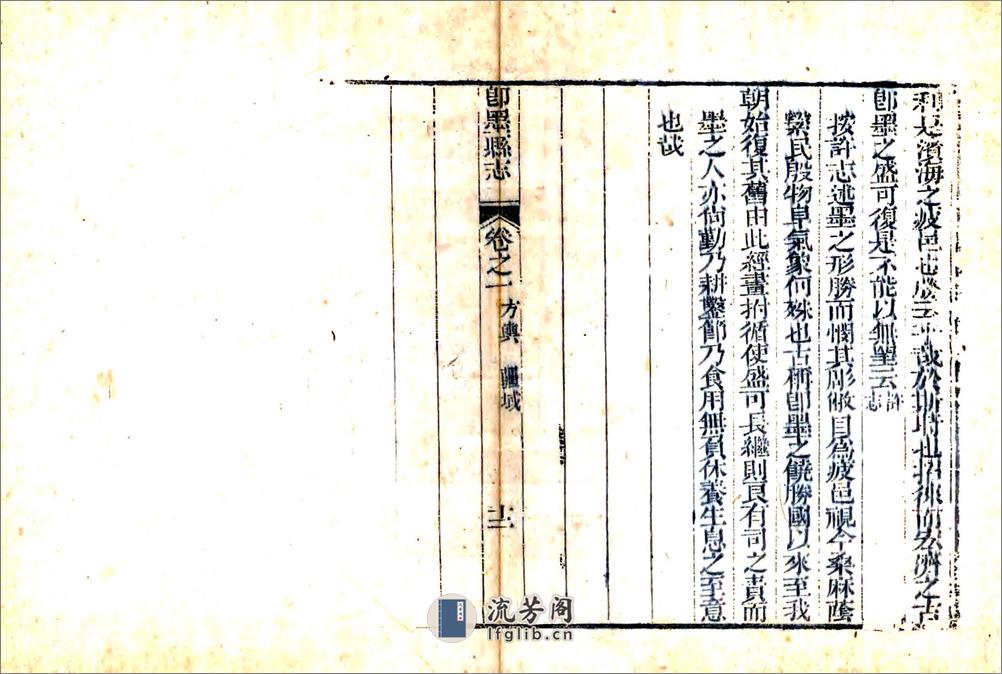 利是濱海之疲邑也於斯時也招徠而安濟之古
卽墨之盛可復是不能以無望云許志
按許志述墨之形勝而憫其彫敝目為疲邑視今桑麻蔭
繁民殷物阜氣象何殊也古稱卽墨之饒勝國以來至我
朝始復其舊由此經畫拊循使盛可長繼則良有司之責而
墨之人亦尚勤乃耕鑿節乃食用無負休養生息之至意
也哉
卽墨縣志 卷之一 方輿 疆域 十二
流芳阁
lfglib.cn